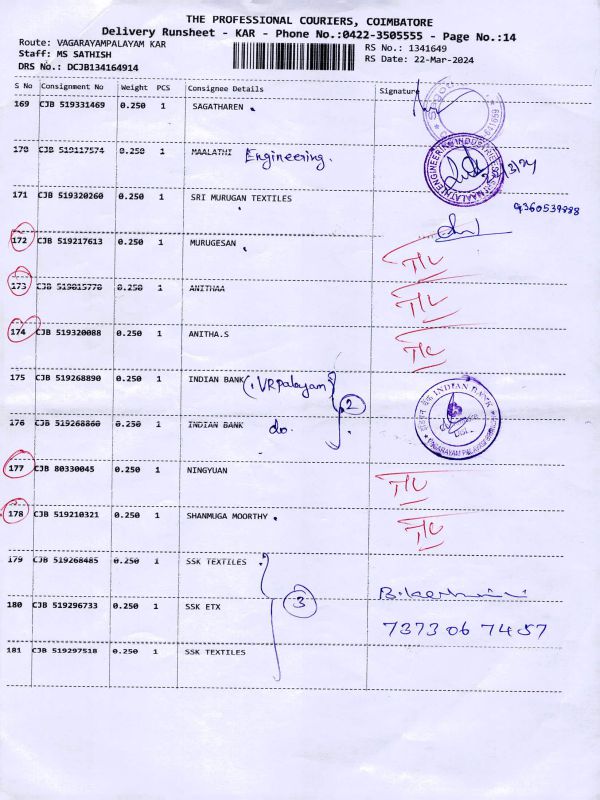 THE PROFESSIONAL COURIERS, COIMBATORE
Delivery Runsheet - KAR - Phone No.:0422-3505555 - Page No.:14
Route: VAGARAYAMPALAYAM KAR
RS No.: 1341649
Staff: MS SATHISH
RS Date: 22-Mar-2024
DRS No.: DCJB134164914
S No Consignment No Weight PCS Consignee Details Signature
169 CJB 519331469 0.250 1 SAGATHAREN
170 CJB 519117574 0.250 1 MAALATHI Engineering.
171 CJB 519320260 0.250 1 SRI MURUGAN TEXTILES
9360539888
172 CJB 519217613 0.250 1 MURUGESAN
173 CJB 519815770 0.250 1 ANITHAA
174 CJB 519320088 0.250 1 ANITHA.S
175 CJB 519268890 0.250 1 INDIAN BANK (VRPalayam 2 INDIAN BANK
176 CJB 519268860 0.250 1 INDIAN BANK do.
177 CJB 80330045 0.250 1 NINGYUAN
178 CJB 519210321 0.250 1 SHANMUGA MOORTHY
179 CJB 519268485 0.250 1 SSK TEXTILES
180 CJB 519296733 0.250 1 SSK ETX 3 7373 067457
181 CJB 519297518 0.250 1 SSK TEXTILES